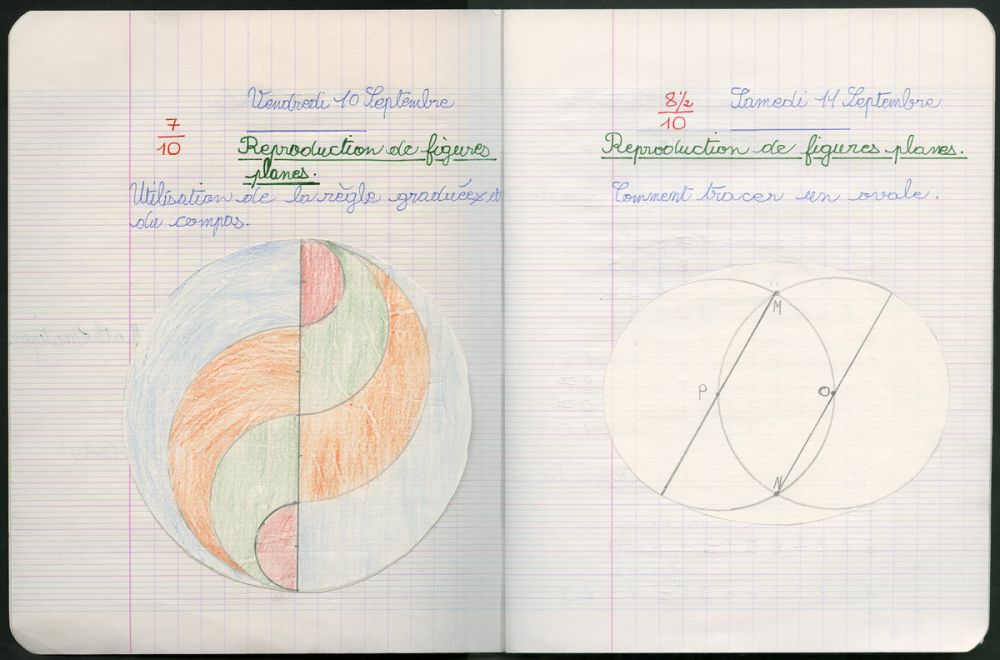 Vendredi 10 Septembre
7
10
Reproduction de figures
planes.
Utilisation de la règle graduéex et
du compas.
8½
10
Samedi 11 Septembre
Reproduction de figures planes.
Comment tracer un ovale.
M
P
O
N